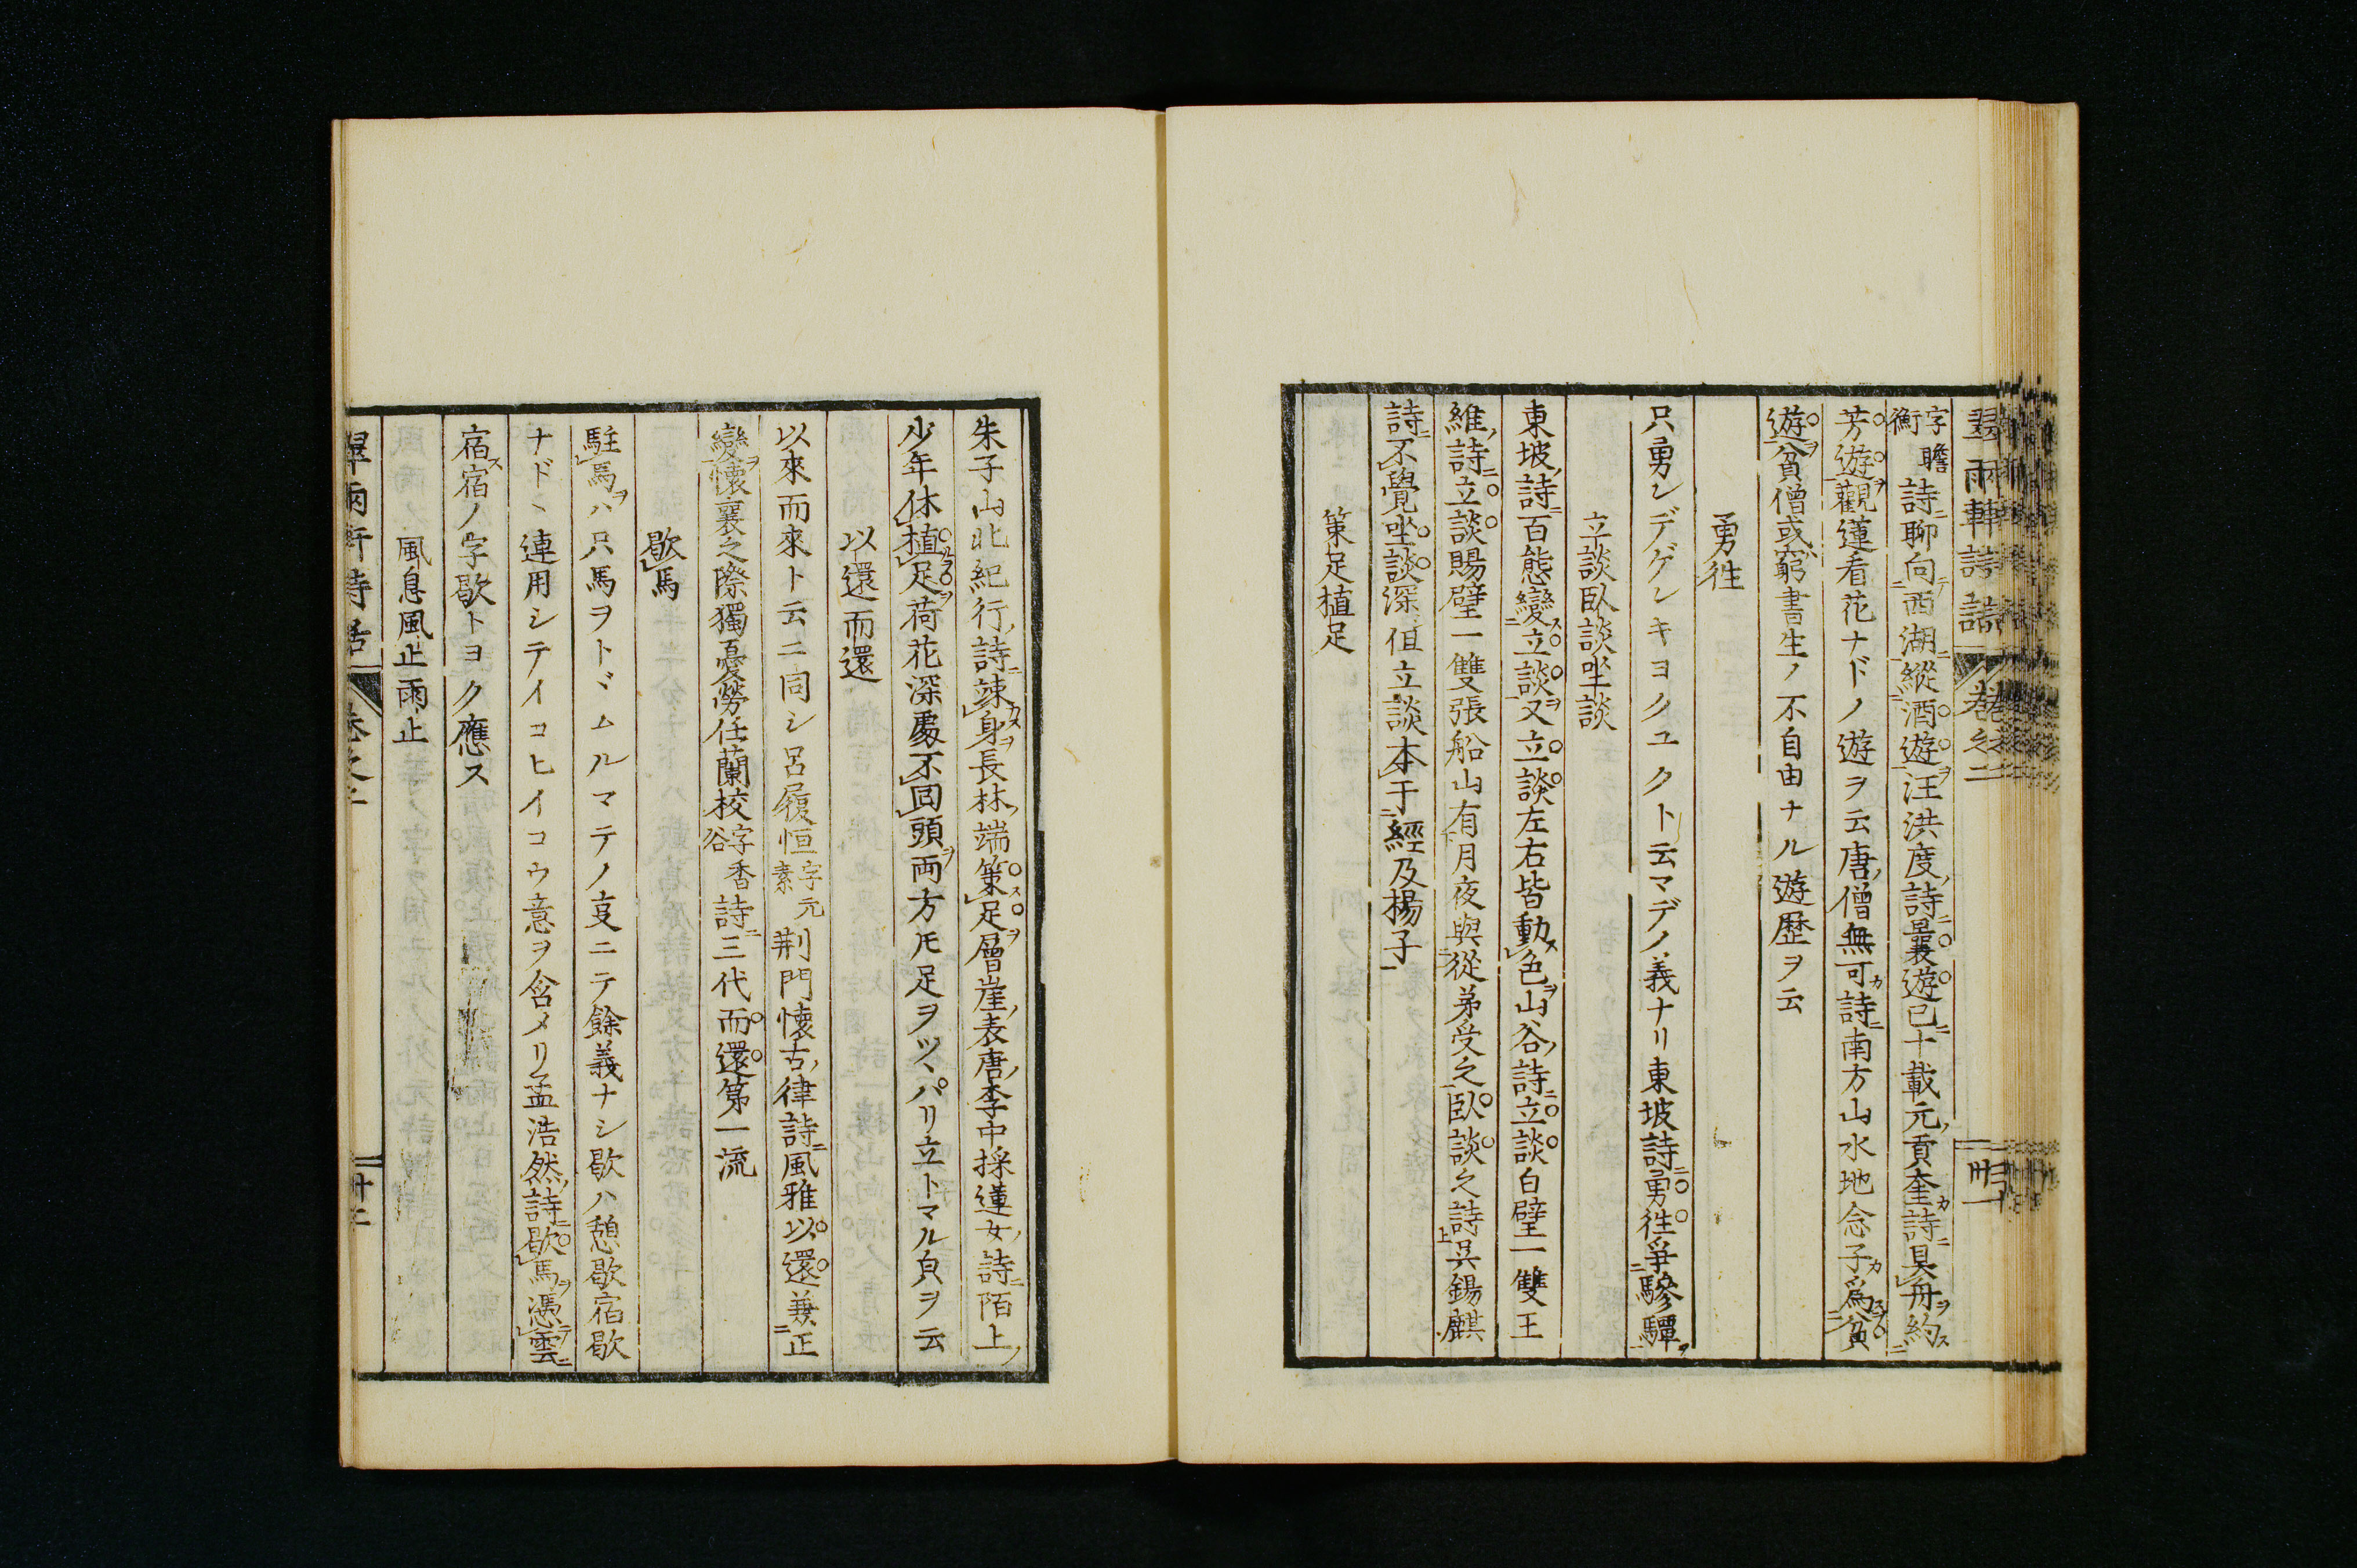 翠雨軒詩話 卷之二 卅一
字瞻衡詩聊向西湖縱酒遊汪洪度詩曩遊已十載元貢奎詩具舟約
芳遊觀蓮看花ナドノ遊ヲ云唐僧無可詩南方山水地念子爲貧
遊貧僧或窮書生ノ不自由ナル遊歷ヲ云
勇往
只勇レデゲレキヨクユクト云マデノ義ナリ東坡詩勇往爭驂驔
立談臥談坐談
東坡詩百態變立談又立談左右皆動色山谷詩立談白璧一雙王
維詩立談賜璧一雙張船山有月夜與從弟受之臥談之詩吳錫麒
詩不覺坐談深但立談本于經及揚子
策足植足
朱子山北紀行詩竦身長林端策足層崖表唐李中採蓮女詩陌上
少年休植足荷花深處不回頭両方トモ足ヲツヽパリ立トマル負ヲ云
以還而還
以來而來ト云ニ同シ呂履恒字元素荆門懷古律詩風雅以還兼正
變懷襄之際獨憂勞任蘭校字香谷詩三代而還第一流
歇馬
駐馬ハ只馬ヲトヾムルマテノ㕝ニテ餘義ナシ歇ハ憩歇宿歇
ナドヽ連用シテイコヒイコウ意ヲ含メリ孟浩然詩歇馬憑雲
宿宿ノ字歇トヨク應ス
風息風止雨止
翠雨軒詩話 卷之二 卅二